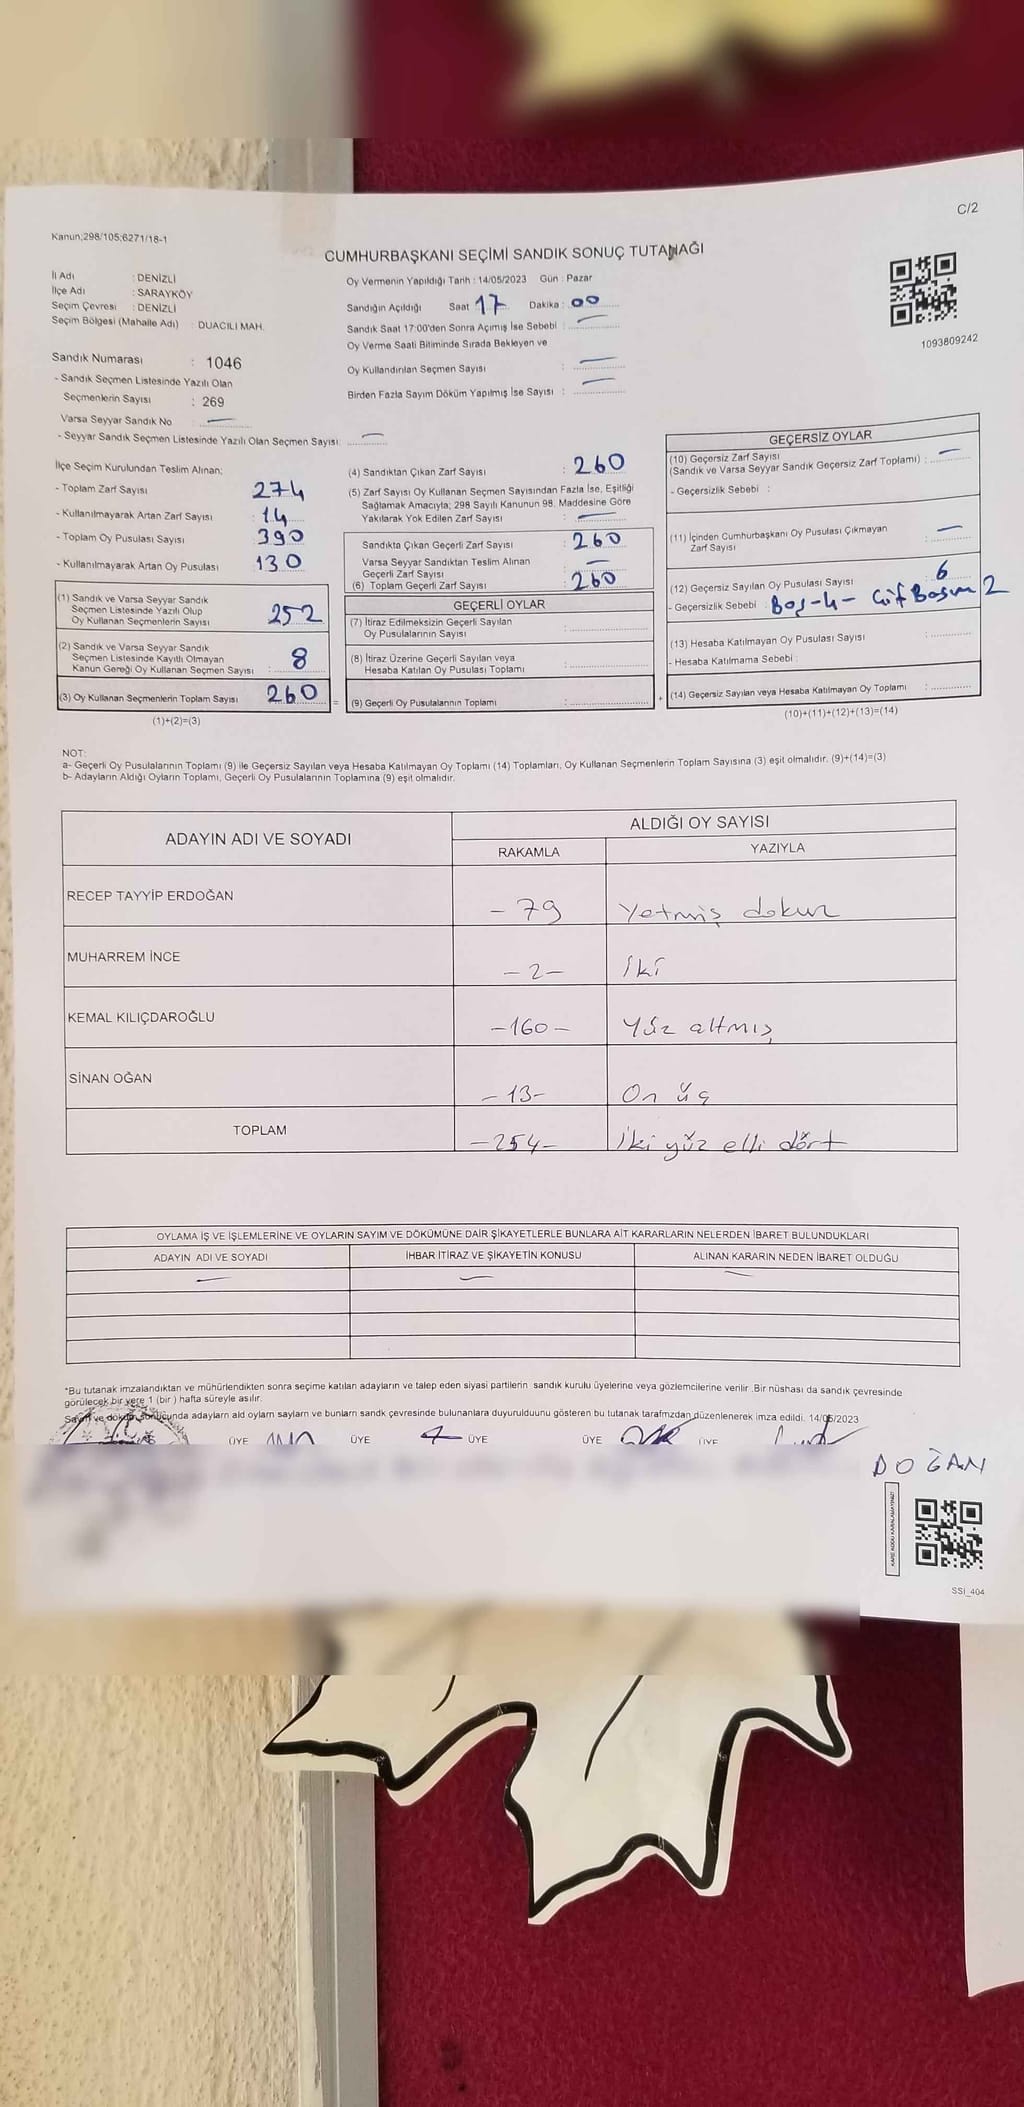 C/2
Kanun;298/105;6271/18-1
CUMHURBAŞKANI SEÇİMİ SANDIK SONUÇ TUTANAĞI
İl Adı : DENİZLİ
İlçe Adı : SARAYKÖY
Seçim Çevresi : DENİZLİ
Seçim Bölgesi (Mahalle Adı) : DUACILI MAH.
Oy Vermenin Yapıldığı Tarih : 14/05/2023 Gün : Pazar
Sandığın Açıldığı Saat 17 Dakika : 00
Sandık Saat 17:00'den Sonra Açımış İse Sebebi : —
Oy Verme Saati Bitiminde Sırada Bekleyen ve
Oy Kullandırılan Seçmen Sayısı : —
Birden Fazla Sayım Döküm Yapılmış İse Sayısı : —
1093809242
Sandık Numarası : 1046
- Sandık Seçmen Listesinde Yazılı Olan
Seçmenlerin Sayısı : 269
Varsa Seyyar Sandık No —
- Seyyar Sandık Seçmen Listesinde Yazılı Olan Seçmen Sayısı: —
İlçe Seçim Kurulundan Teslim Alınan;
- Toplam Zarf Sayısı 274
- Kullanılmayarak Artan Zarf Sayısı : 14
- Toplam Oy Pusulası Sayısı : 390
- Kullanılmayarak Artan Oy Pusulası : 130
(1) Sandık ve Varsa Seyyar Sandık
Seçmen Listesinde Yazılı Olup
Oy Kullanan Seçmenlerin Sayısı : 252
(2) Sandık ve Varsa Seyyar Sandık
Seçmen Listesinde Kayıtlı Olmayan
Kanun Gereği Oy Kullanan Seçmen Sayısı : 8
(3) Oy Kullanan Seçmenlerin Toplam Sayısı : 260
(1)+(2)=(3)
(4) Sandıktan Çıkan Zarf Sayısı : 260
(5) Zarf Sayısı Oy Kullanan Seçmen Sayısından Fazla İse, Eşitliği
Sağlamak Amacıyla; 298 Sayılı Kanunun 98. Maddesine Göre
Yakılarak Yok Edilen Zarf Sayısı : —
Sandıkta Çıkan Geçerli Zarf Sayısı : 260
Varsa Seyyar Sandıktan Teslim Alınan
Geçerli Zarf Sayısı : —
(6) Toplam Geçerli Zarf Sayısı : 260
GEÇERLİ OYLAR
(7) İtiraz Edilmeksizin Geçerli Sayılan
Oy Pusulalarının Sayısı :
(8) İtiraz Üzerine Geçerli Sayılan veya
Hesaba Katılan Oy Pusulası Toplamı :
= (9) Geçerli Oy Pusulalarının Toplamı :
GEÇERSİZ OYLAR
(10) Geçersiz Zarf Sayısı
(Sandık ve Varsa Seyyar Sandık Geçersiz Zarf Toplamı) : —
- Geçersizlik Sebebi :
(11) İçinden Cumhurbaşkanı Oy Pusulası Çıkmayan
Zarf Sayısı : —
(12) Geçersiz Sayılan Oy Pusulası Sayısı 6
- Geçersizlik Sebebi : Boş-4- Çif Basım 2
(13) Hesaba Katılmayan Oy Pusulası Sayısı :
- Hesaba Katılmama Sebebi :
+ (14) Geçersiz Sayılan veya Hesaba Katılmayan Oy Toplamı :
(10)+(11)+(12)+(13)=(14)
NOT:
a- Geçerli Oy Pusulalarının Toplamı (9) ile Geçersiz Sayılan veya Hesaba Katılmayan Oy Toplamı (14) Toplamları, Oy Kullanan Seçmenlerin Toplam Sayısına (3) eşit olmalıdır. (9)+(14)=(3)
b- Adayların Aldığı Oyların Toplamı, Geçerli Oy Pusulalarının Toplamına (9) eşit olmalıdır.
ADAYIN ADI VE SOYADI ALDIĞI OY SAYISI
RAKAMLA YAZIYLA
RECEP TAYYİP ERDOĞAN - 79 Yetmiş dokuz
MUHARREM İNCE -2- iki
KEMAL KILIÇDAROĞLU -160- Yüz altmış
SİNAN OĞAN -13- On üç
TOPLAM -254- iki yüz elli dört
OYLAMA İŞ VE İŞLEMLERİNE VE OYLARIN SAYIM VE DÖKÜMÜNE DAİR ŞİKAYETLERLE BUNLARA AİT KARARLARIN NELERDEN İBARET BULUNDUKLARI
ADAYIN ADI VE SOYADI İHBAR İTİRAZ VE ŞİKAYETİN KONUSU ALINAN KARARIN NEDEN İBARET OLDUĞU
— — —
*Bu tutanak imzalandıktan ve mühürlendikten sonra seçime katılan adayların ve talep eden siyasi partilerin sandık kurulu üyelerine veya gözlemcilerine verilir. Bir nüshası da sandık çevresinde
görülecek bir yere 1 (bir ) hafta süreyle asılır.
Sayım ve döküm sonucunda adayların ald oyların sayların ve bunların sandk çevresinde bulunanlara duyurulduunu gösteren bu tutanak tarafmzdan düzenlenerek imza edildi. 14/05/2023
ÜYE ÜYE ÜYE ÜYE ÜYE
DOĞAN
KARE KODU KARALAMAYINIZ!
SSİ_404